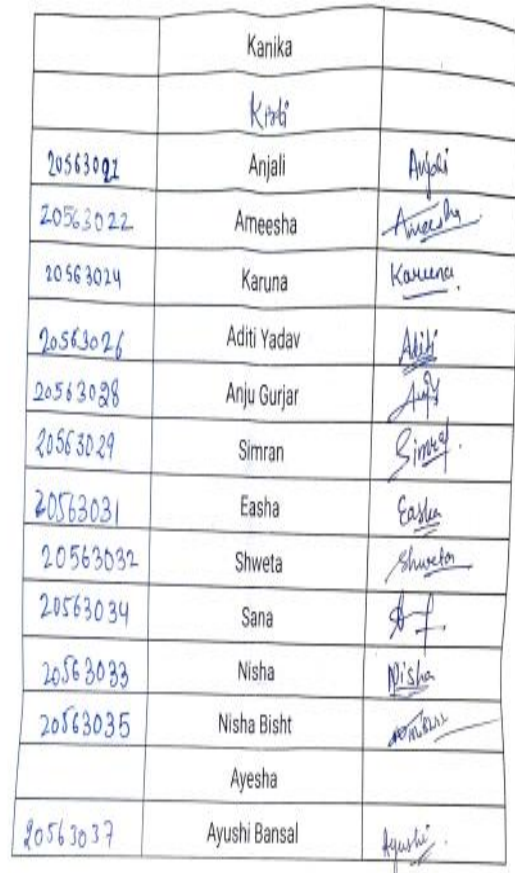 Kanika
Kirti
20563021 Anjali Anjali
20563022 Ameesha Ameesha
20563024 Karuna Karuna
20563026 Aditi Yadav Aditi
20563028 Anju Gurjar Anju
20563029 Simran Simran
20563031 Easha Easha
20563032 Shweta Shweta
20563034 Sana
20563033 Nisha Nisha
20563035 Nisha Bisht
Ayesha
20563037 Ayushi Bansal Ayushi